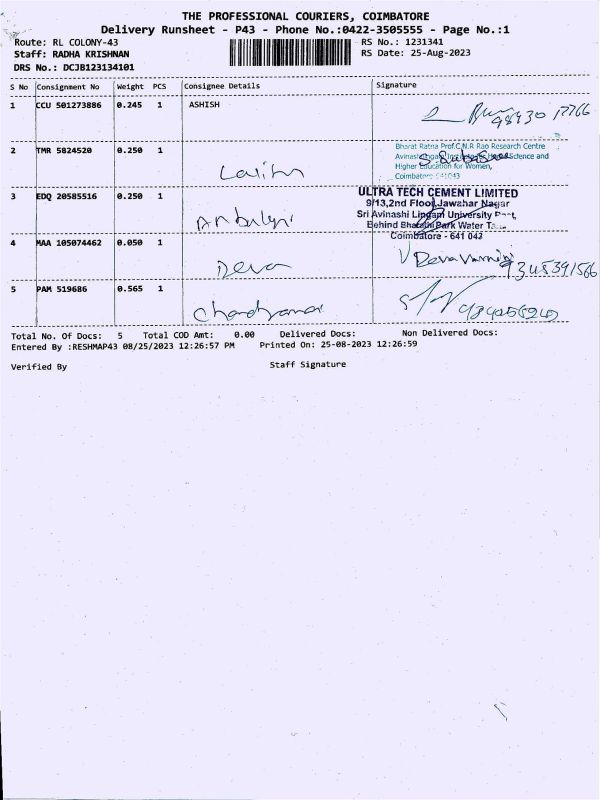 THE PROFESSIONAL COURIERS, COIMBATORE
Delivery Runsheet - P43 - Phone No.:0422-3505555 - Page No.:1
Route: RL COLONY-43
RS No.: 1231341
Staff: RADHA KRISHNAN
RS Date: 25-Aug-2023
DRS No.: DCJB123134101
S No Consignment No Weight PCS Consignee Details Signature
1 CCU 501273886 0.245 1 ASHISH
2 TMR 5824520 0.250 1
Bharat Ratna Prof.C.N.R Rao Research Centre
Higher Education for Women,
Coimbatore
Lalitha
3 EDQ 20585516 0.250 1
ULTRA TECH CEMENT LIMITED
9/13,2nd Floor,Jawahar Nagar
Sri Avinashi Lingam University
Behind Bharathi Park Water
Coimbatore - 641 043
4 MAA 105074462 0.050 1
Deva
9345391566
5 PAM 519686 0.565 1
Total No. Of Docs: 5 Total COD Amt: 0.00 Delivered Docs: Non Delivered Docs:
Entered By :RESHMAP43 08/25/2023 12:26:57 PM Printed On: 25-08-2023 12:26:59
Verified By Staff Signature